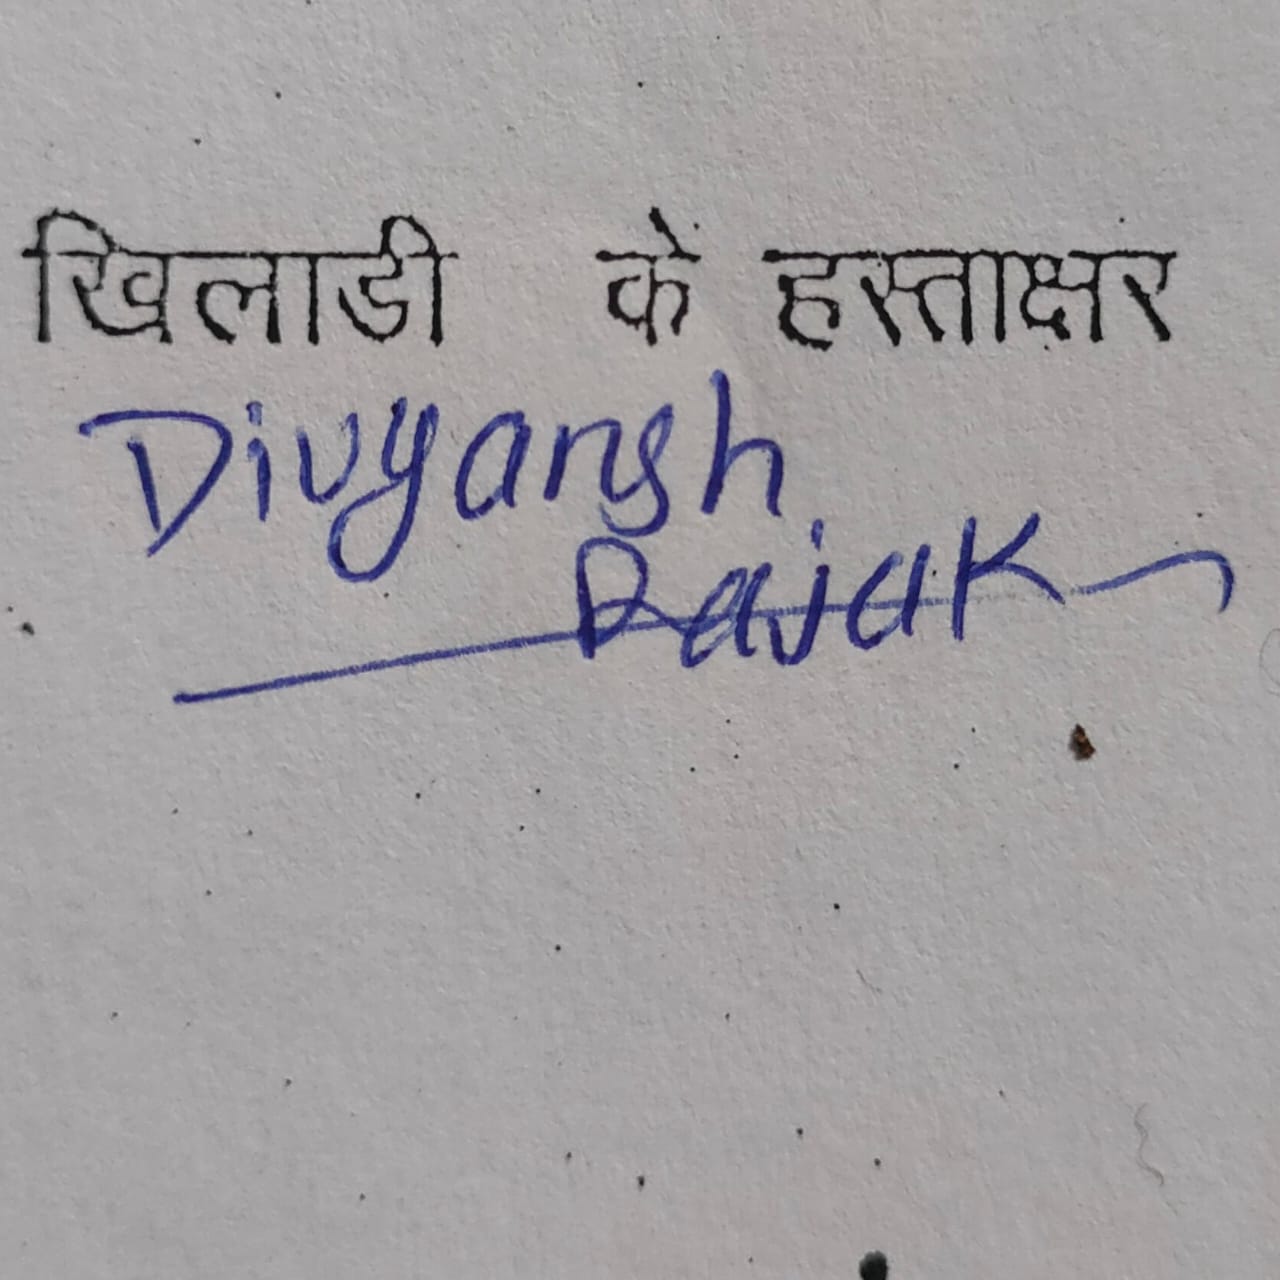 खिलाडी के हस्ताक्षर
Divyansh
Rajak